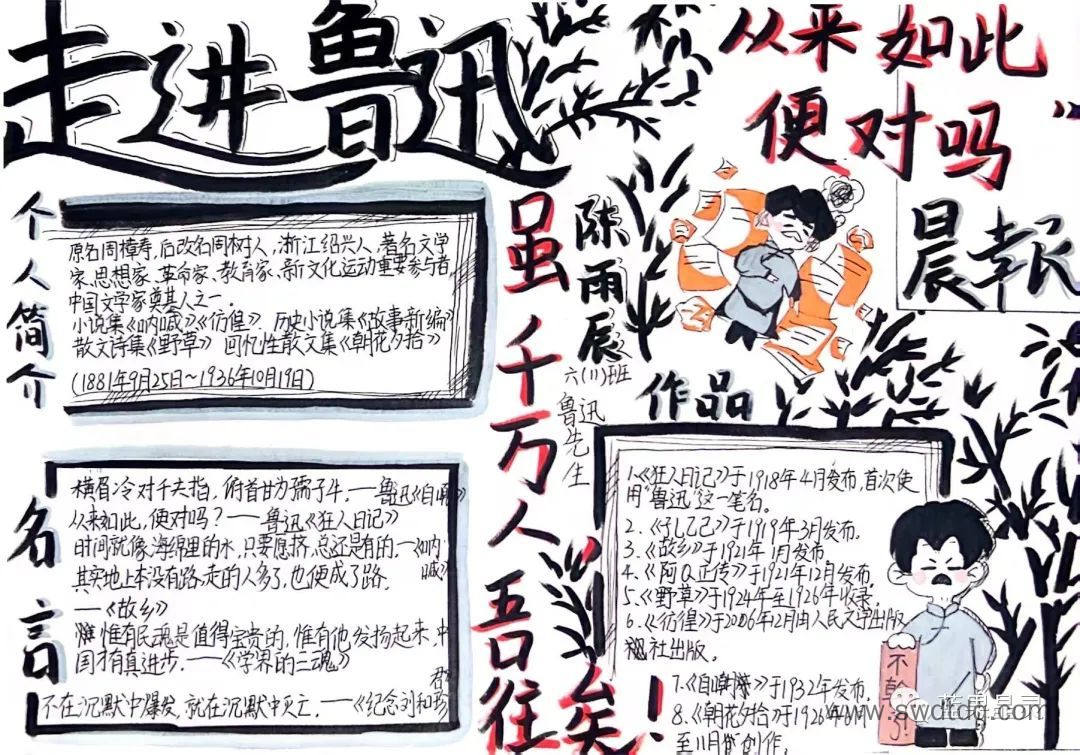 走进鲁迅
从来如此
便对吗
晨报
个人简介
原名周樟寿,后改名周树人,浙江绍兴人,著名文学
家、思想家、革命家、教育家、新文化运动重要参与者,
中国文学家奠基人之一。
小说集《呐喊》、《彷徨》、历史小说集《故事新编》
散文诗集《野草》 回忆性散文集《朝花夕拾》
(1881年9月25日~1936年10月19日)
名言
横眉冷对千夫指,俯首甘为孺子牛。——鲁迅《自嘲》
从来如此,便对吗?——鲁迅《狂人日记》
时间就像海绵里的水,只要愿挤,总还是有的。—《呐喊》
其实地上本没有路,走的人多了,也便成了路。
——《故乡》
惟有民魂是值得宝贵的,惟有他发扬起来,中
国才有真进步。——《学界的三魂》
不在沉默中爆发,就在沉默中灭亡。——《纪念刘和珍君》
虽千万人吾往矣!
陈雨辰
六(11)班
鲁迅先生
作品
1.《狂人日记》于1918年4月发布,首次使
用“鲁迅”这一笔名。
2.《孔乙己》于1919年3月发布。
3.《故乡》于1921年1月发布
4.《阿Q正传》于1921年12月发布。
5.《野草》于1924年至1926年收录。
6.《彷徨》于2006年2月由人民文学出版
社出版。
7.《自嘲》于1932年发布,
8.《朝花夕拾》于1926年
至11月创作。
不干了!
www.swdtdq.com